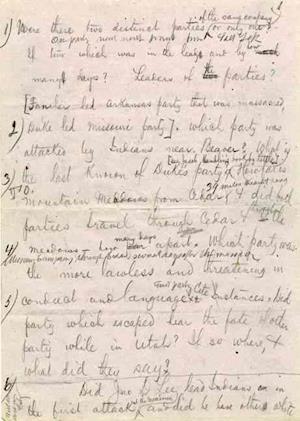 of the same company
1) Were there two distinct parties (or only one?
If two which was in the lead and by how
many days? Leaders of the parties?
[Fancher led Arkansas party that was massacred,
Duke led Missouri party]. which party was
2)
attacked by Indians near Beaver? What is
3) the last known of Dukes party & how far is
Mountain Meadows from Cedar & did
parties travel through Cedar & the
many days
4) meadows - how apart. What party was
the more lawless and threatening in
5) conduct and language & cite Instances. Did
party which escaped hear the fate of other
party while in Utah? If so where, &
what did they say?
6) Did Jno D Lee, lead Indians on in
the first attack, and did he have others white